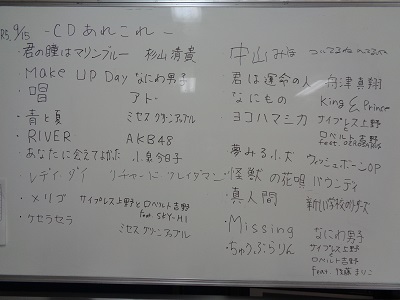 R5. 9/15 ~CDあれこれ~
・君の瞳はマリンブルー 杉山清貴
・Make UP Day なにわ男子
・唱 アド
・青と夏 ミセスグリーンアップル
・RIVER AKB48
・あなたに会えてよかった 小泉今日子
・レディ・ダイ リチャード クレイダマン
・メリゴ サイプレス上野とロベルト吉野
feat. SKY-HI
・ケセラセラ ミセスグリーンアップル
中山みほ
・君は運命の人
・なにもの King & Prince
・ヨコハマシカ サイプレス上野
と
ロベルト吉野
feat.
・夢みる小犬 ウィッシュボーンOP
・怪獣の花唄 バウンディ
・真人間 新しい学校のリーダーズ
・Missing なにわ男子
・ちゅうぶらりん サイプレス上野
と
ロベルト吉野
feat. 後藤まりこ